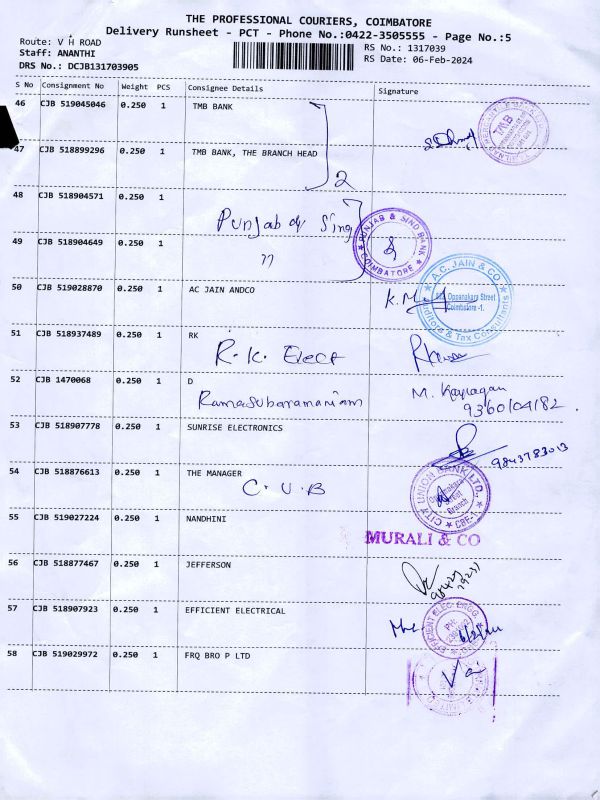 THE PROFESSIONAL COURIERS, COIMBATORE
Delivery Runsheet - PCT - Phone No.:0422-3505555 - Page No.:5
Route: V H ROAD
RS No.: 1317039
Staff: ANANTHI
RS Date: 06-Feb-2024
DRS No.: DCJB131703905
S No Consignment No Weight PCS Consignee Details Signature
46 CJB 519045046 0.250 1 TMB BANK
TMB
47 CJB 518899296 0.250 1 TMB BANK, THE BRANCH HEAD
2
48 CJB 518904571 0.250 1
Punjab & Sing
PUNJAB & SIND BANK
COIMBATORE
49 CJB 518904649 0.250 1
"
50 CJB 519028870 0.250 1 AC JAIN ANDCO
A.C. JAIN & CO
K.M
Oppanakara Street
Coimbatore -1.
Auditors & Tax Consultants
51 CJB 518937489 0.250 1 RK
R.K. Elect
52 CJB 1470068 0.250 1 D
Ramasubaramaniam
M.
9360104182.
53 CJB 518907778 0.250 1 SUNRISE ELECTRONICS
9843783013
54 CJB 518876613 0.250 1 THE MANAGER
C.U.B
CITY UNION BANK LTD.,
Street
Branch
CBE-1
55 CJB 519027224 0.250 1 NANDHINI
MURALI & CO
56 CJB 518877467 0.250 1 JEFFERSON
57 CJB 518907923 0.250 1 EFFICIENT ELECTRICAL
EFFICIENT ELEC. ENGG
58 CJB 519029972 0.250 1 FRQ BRO P LTD